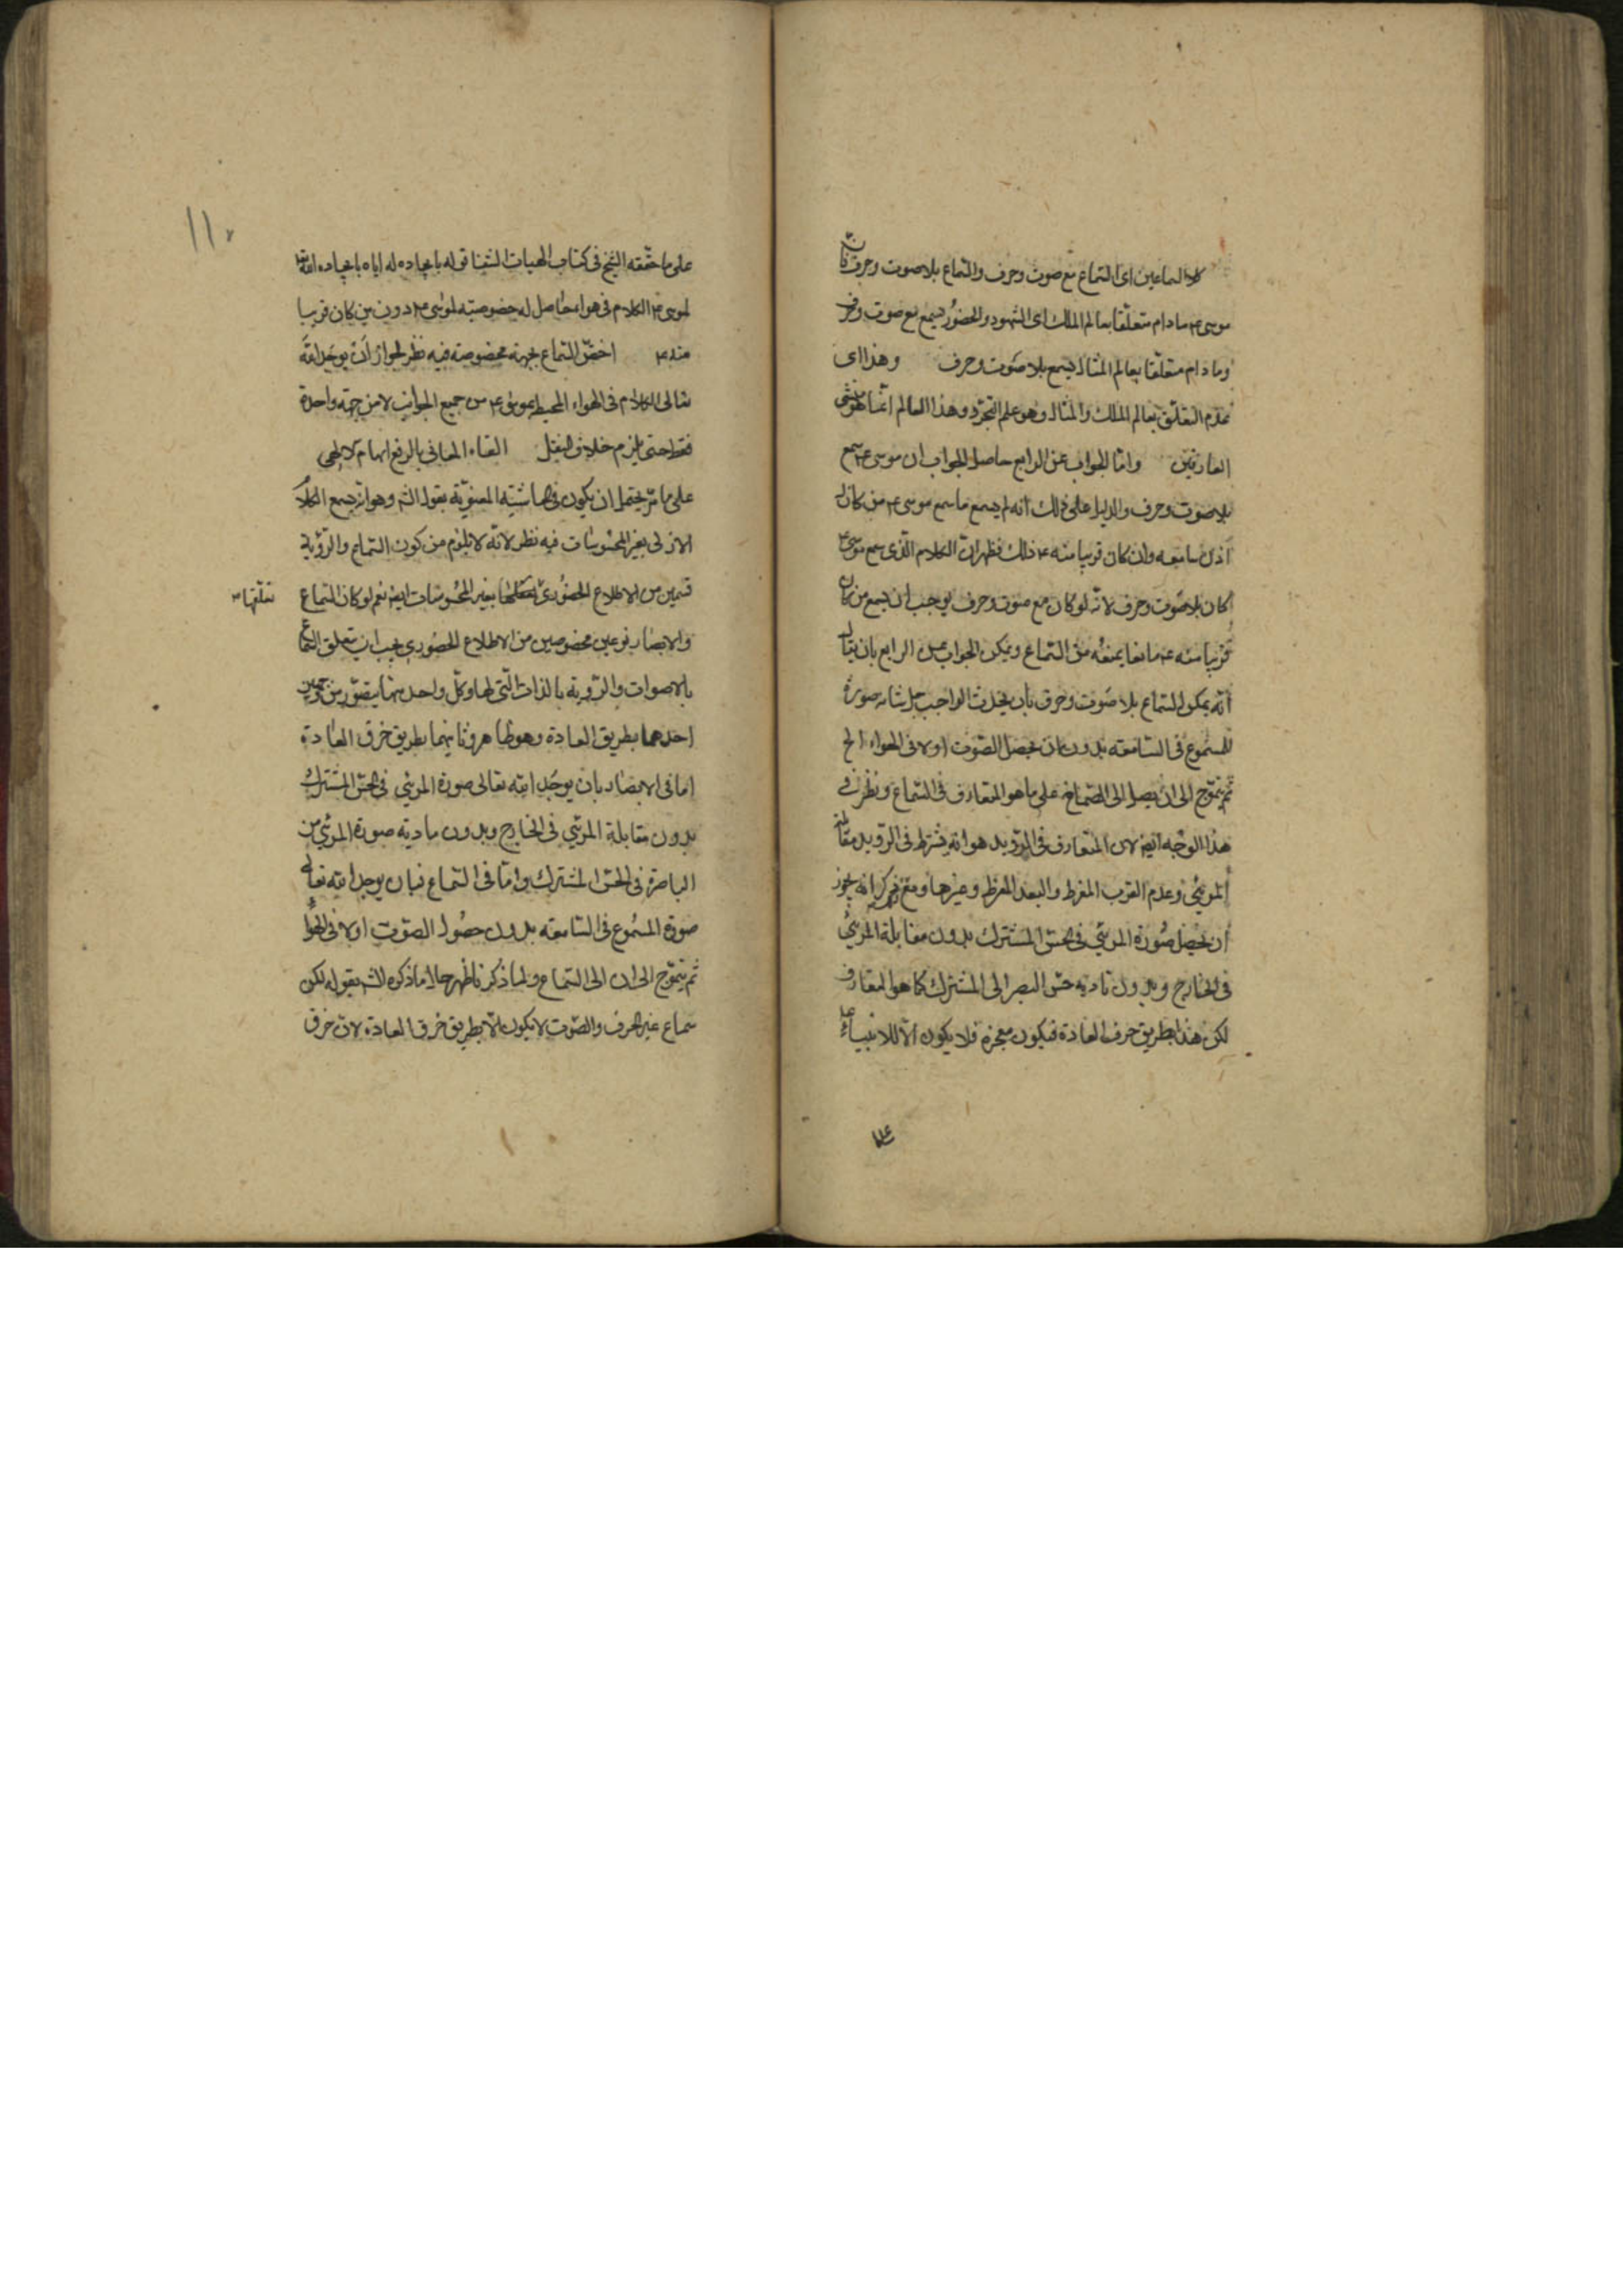 كلا السماعين اى السماع مع صوت وحرف والسماع بلا صوت وحرف فان
موسى ع م ما دام متعلقا بعالم الملك اى الشهود والحضور يسمع مع صوت وحرف
وما دام متعلقا بعالم المثال يسمع بلا صوت وحرف وهذا اى
عدم التعلق بعالم الملك والمثال وهو علم التجرد وهذا العالم انما هو
العارفين واما الجواب عن الرابع حاصل الجواب ان موسى ع م سمع
بلا صوت وحرف والدليل على ذلك انه لم يسمع ما سمع موسى ع م من كان له
اذن سامعه وان كان قريبا منه ع م ذلك فظهر ان الكلام الذى سمع موسى ع م
كان بلا صوت وحرف لانه لو كان مع صوت وحرف يوجب ان يسمع من كان
قريبا منه ع م مانعا يمنعه من السماع ويمكن الجواب عن الرابع بان يقال
انه يمكن السماع بلا صوت وحرف بان يحدث الواجب جل شانه صورة
المسموع فى السامعه بدون ان يحصل الصوت اولا فى الهواء الخ
ثم يتموج الى ان يصل الى الصماخ على ما هو المتعارف فى السماع ونظر فى
هذا الوجه ايضا لان المتعارف فى الرؤيه هو انه يشترط فى الرؤيه مقابلة
المرئي وعدم القرب المفرط والبعد المفرط وغيرها ومع ذلك انه يجوز
ان يحصل صورة المرئي فى الحس المشترك بدون مقابلة المرئي
فى الخارج وبدون تاديه حس البصر الى المشترك كما هو المتعارف
لكن هذا بطريق خرق العادة فيكون معجزة فلا يكون الا للانبياء ع م
على ما حققه الشيخ فى كتاب الهيات الشفا قوله بايجاده له اياه بايجاده الله تع
لموسى ع م الكلام فى هواء حاصل له خصوصيته لموسى ع م دون من كان قريبا
منه ع م اختص السماع بجهة مخصوصته فيه نظر لجواز ان يوجد الله
تعالى الكلام فى الهواء المحيط بموسى ع م من جميع الجوانب لا من جهة واحدة
فقط حتى يلزم خلاف النقل القاء المعانى بالرفع الهام الالهى
على ما مر يحتمل ان يكون فى حاشيته المعنوية بقوله الثم وهو انه يسمع الكلام
الازلى بغير المحسوسات فيه نظر لانه لا يلزم من كون السماع والرؤية
قسمين من الاطلاع الحضورى بغير المحسوسات ايضا نعم لو كان السماع
تعلقها
والابصار نوعين مخصوصين من الاطلاع الحضورى يجب ان يتعلق السماع
بالاصوات والرؤية بالذات التى لها وكل واحد منهما يتصور من وجهين
احدهما بطريق العادة وهو ظاهر وثانيهما بطريق خرق العادة
اما فى الابصار بان يوجد الله تعالى صورة المرئي فى الحس المشترك
بدون مقابلة المرئي فى الخارج وبدون تاديه صورة المرئي من
الباصرة فى الحس المشترك واما فى السماع فبان يوجد الله تعالى
صورة المسموع فى السامعه بدون حصول الصوت اولا فى الهواء
ثم يتموج الى ان الى السماع ولما ذكرنا ظهر حال ما ذكره الش بقوله لكن
سماع غير الحرف والصوت لا يكون الا بطريق خرق العادة لان خرق